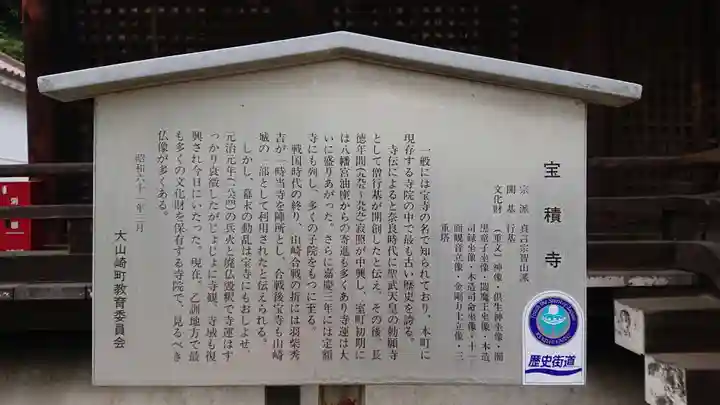 宝積寺
宗派　真言宗智山派
開基　行基
文化財　（重文）
黒童子坐像・閻魔王坐像・木造
司録坐像・木造司命坐像・十一
面観音立像・金剛力士立像・三
重塔
一般には宝寺の名で知られており、本町に
現存する寺院の中で最も古い歴史を誇る。
寺伝によると奈良時代に聖武天皇の勅願寺
として僧行基が開創したと伝え、その後、長
徳年間（九九五～九九九）寂照が中興し、室町初期に
は八幡宮油座からの寄進も多くあり寺運は大
いに盛りあがった。さらに嘉慶三年には定額
寺にも列し、多くの子院をもつに至る。
戦国時代の終り、山崎合戦の折には羽柴秀
吉が一時当寺を陣所とし、合戦後宝寺も山崎
城の一部として利用されたと伝えられる。
しかし、幕末の動乱は宝寺にもおしよせ、
元治元年（一八六四）の兵火と廃仏毀釈で寺運はす
っかり衰微したがじょじょに寺観、寺域も復
興され今日にいたった。現在、乙訓地方で最
も多くの文化財を保有する寺院で、見るべき
仏像が多くある。
昭和六十一年三月
大山崎町教育委員会
歴史街道